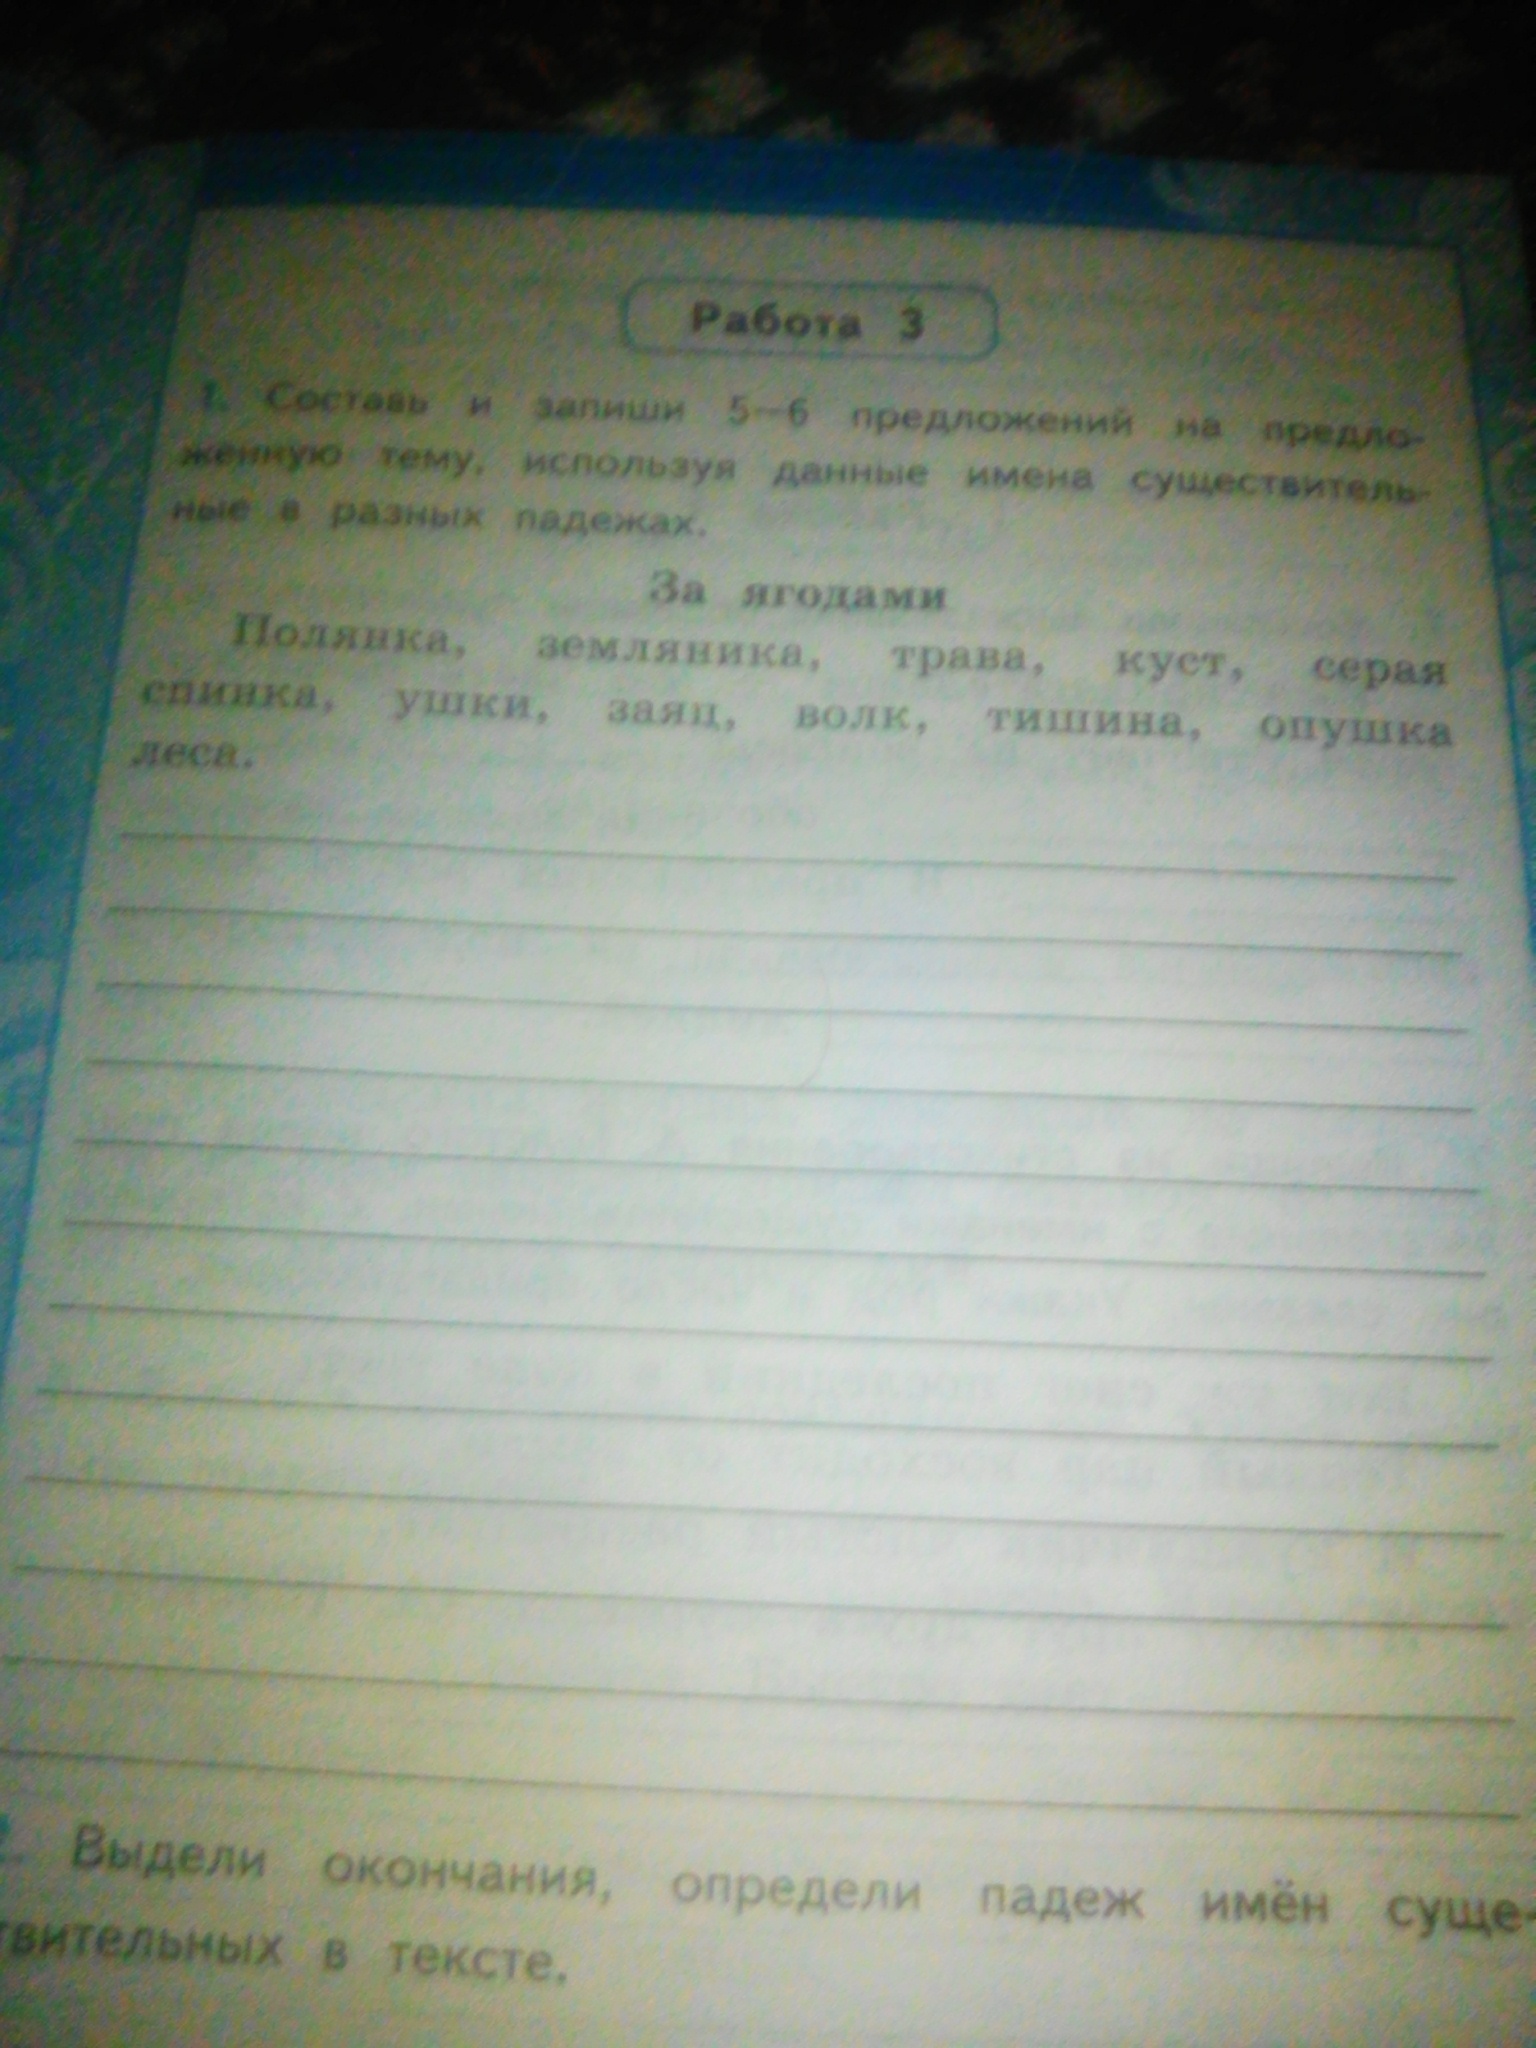 Работа 3
1. Составь и запиши 5—6 предложений на предло-
женную тему, используя данные имена существитель-
ные в разных падежах.
За ягодами
Полянка, земляника, трава, куст, серая
спинка, ушки, заяц, волк, тишина, опушка
леса.
2. Выдели окончания, определи падеж имён суще-
твительных в тексте.